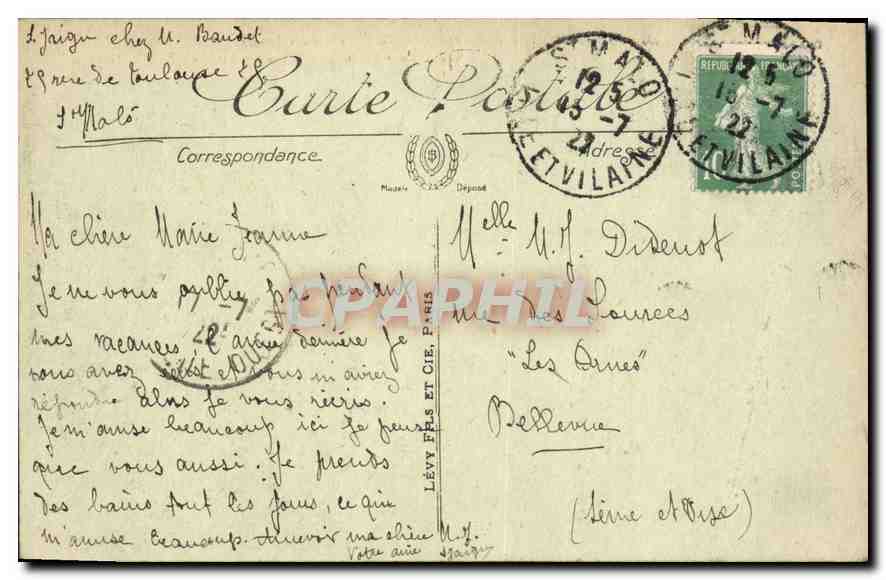 chez M. Baudet
rue de Toulouse
St Malo
Carte Postale
Correspondance
Adresse
Modèle Déposé
ST MALO
12 5
13 -7
22
ILLE ET VILAINE
ST MALO
12 5
13 -7
22
ILLE ET VILAINE
REPUBLIQUE FRANCAISE
10
Ma chère Marie Jeanne
Je ne vous oublie pas pendant
mes vacances l'année dernière Je
vous avez et vous m'aviez
répondu alors Je vous récris.
Je m'amuse beaucoup ici Je pense
que vous aussi. Je prends
des bains tout les jours, ce qui
m'amuse beaucoup. Aurevoir ma chère M. J.
Votre amie
-7
22
CPAPHIL
LÉVY FILS ET CIE, PARIS
Melle M. J. Diderot
rue des Sources
"Les Ormes"
Bellevue
(Seine et Oise)